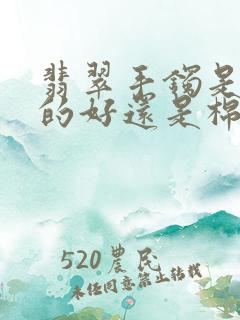 翡翠手镯是
的好还是棉
520農民
未经同意禁止转载